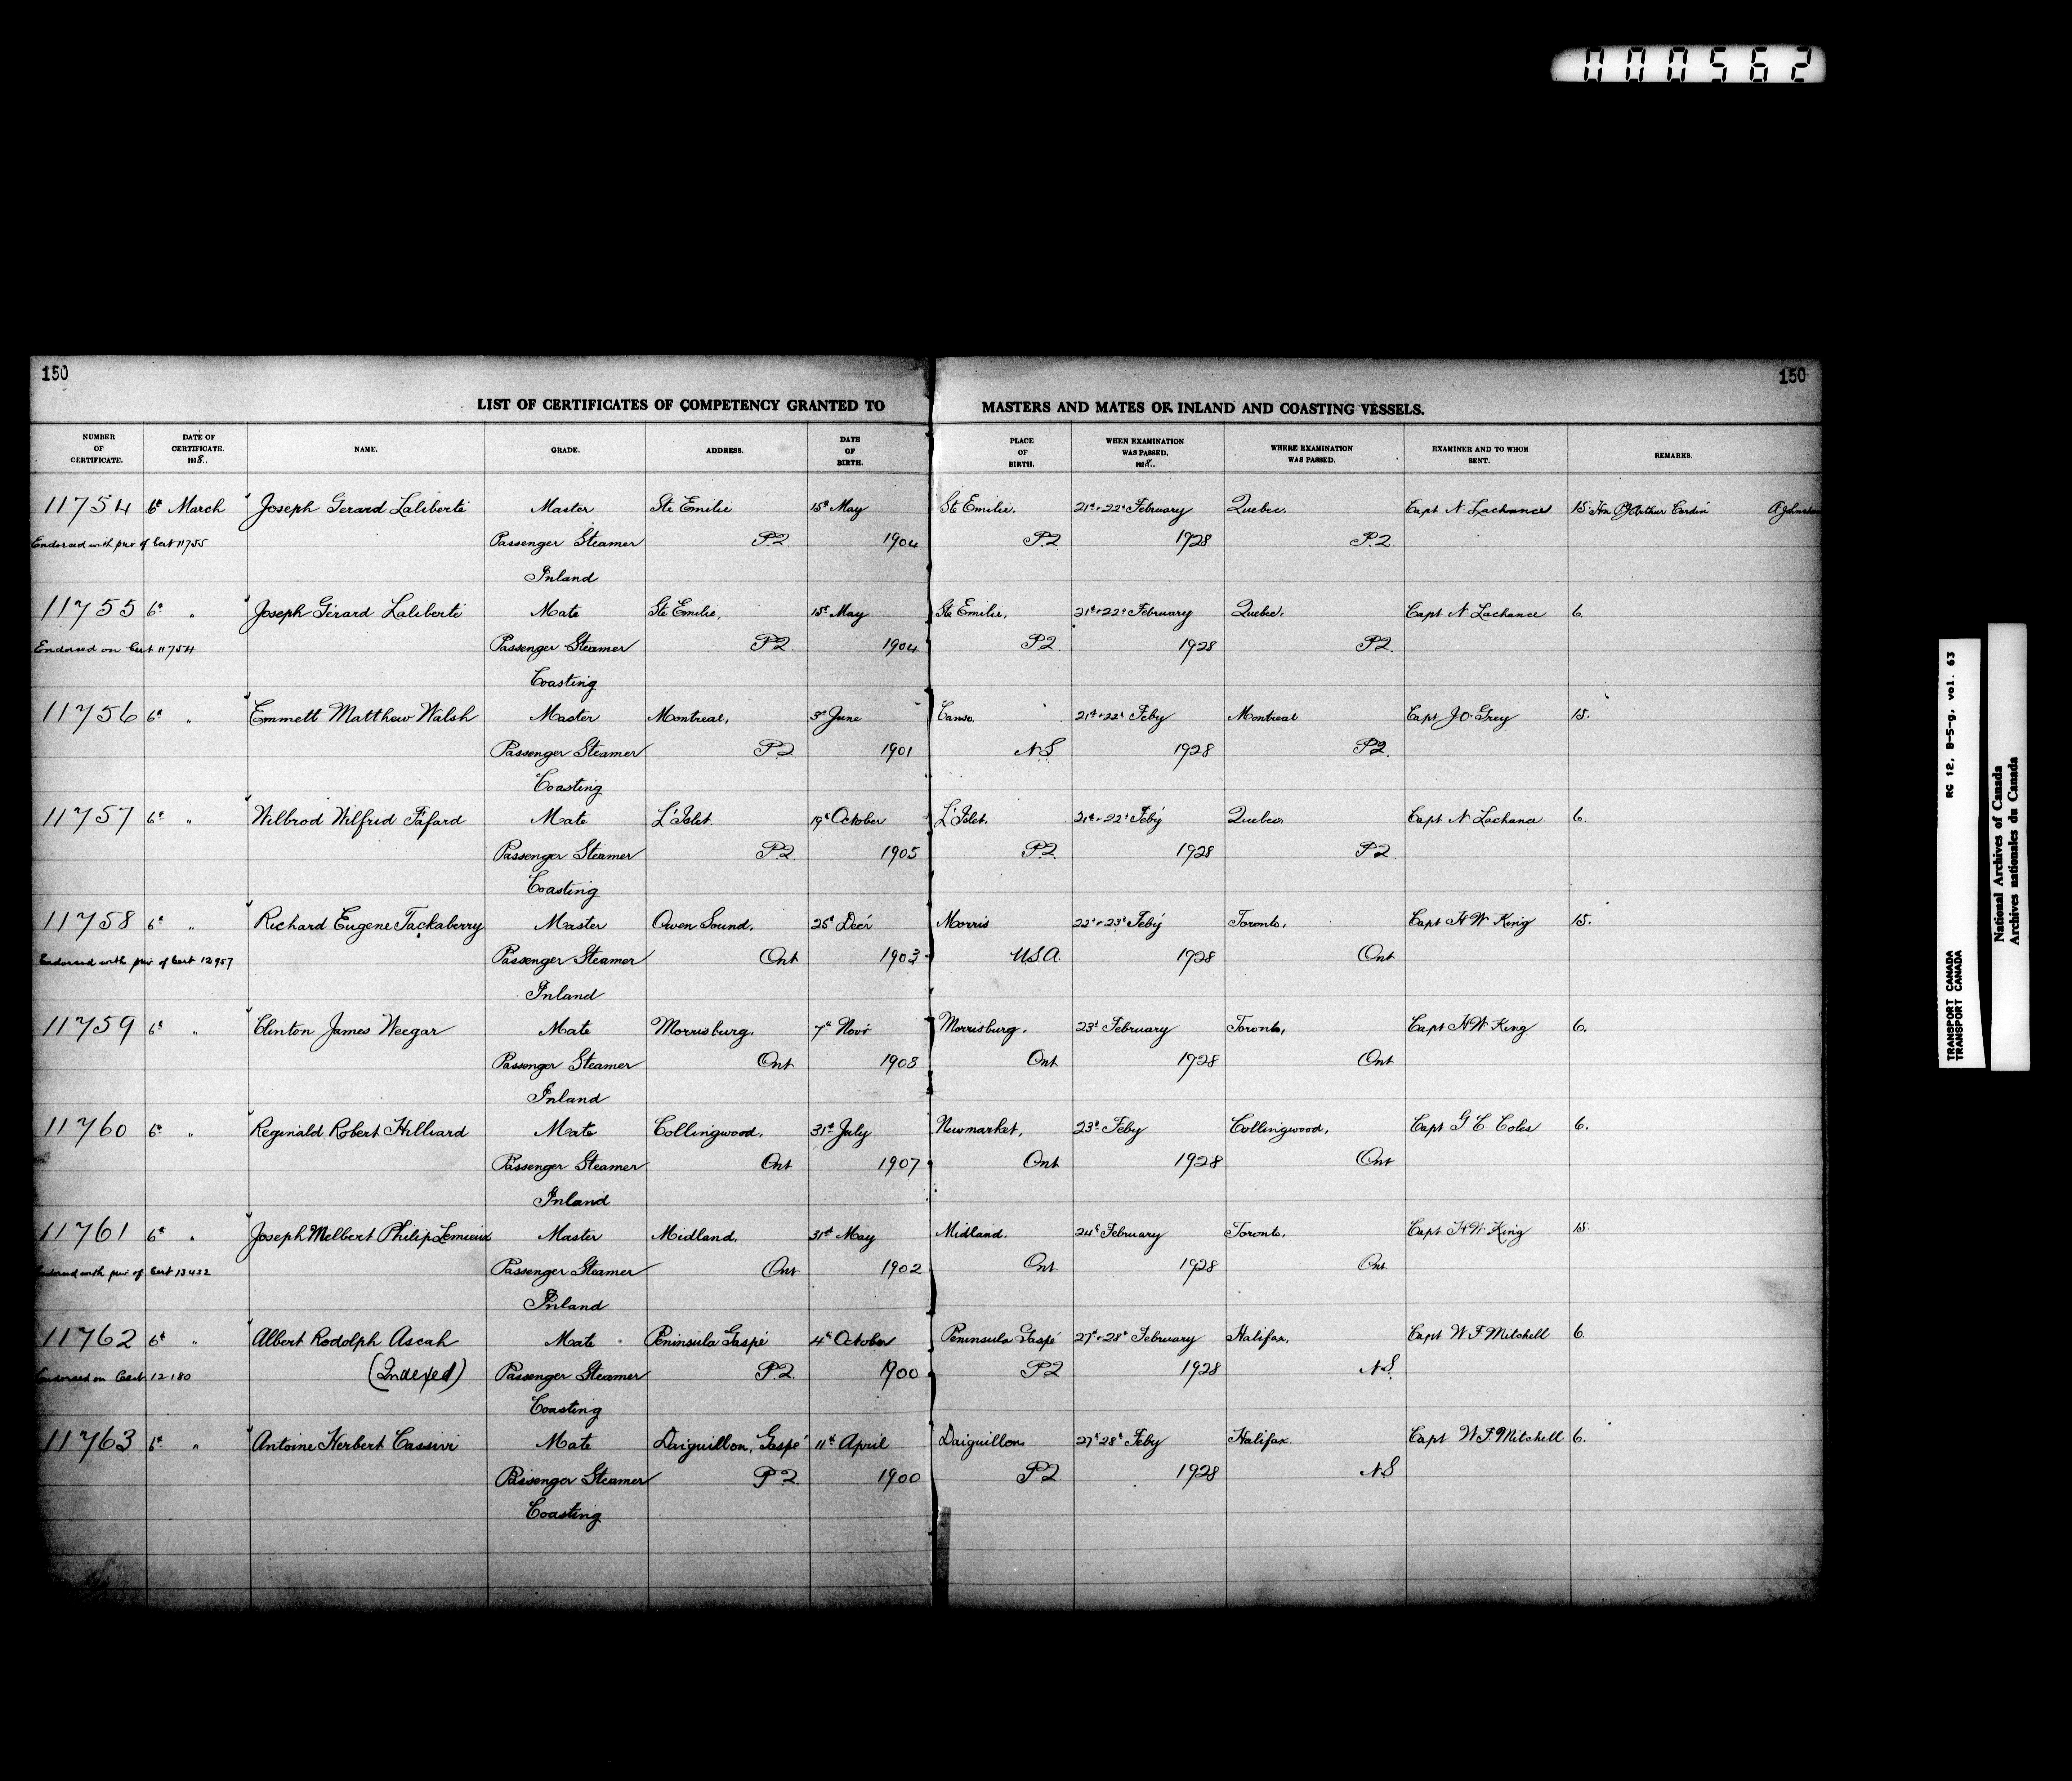 000562
150
150
LIST OF CERTIFICATES OF COMPETENCY GRANTED TO MASTERS AND MATES OF INLAND AND COASTING VESSELS.
NUMBER OF CERTIFICATE. DATE OF CERTIFICATE. 1928.. NAME. GRADE. ADDRESS. DATE OF BIRTH. PLACE OF BIRTH. WHEN EXAMINATION WAS PASSED. 1928.. WHERE EXAMINATION WAS PASSED. EXAMINER AND TO WHOM SENT. REMARKS.
11754 6th March Joseph Gerard Laliberté Master Ste Emilie 15th May Ste Emilie. 21st & 22d February Quebec. Capt N. Lachance 15 Hon PJ Arthur Cardin A Johnston
Endorsed with par of Cert 11755 Passenger Steamer P.Q. 1904 P.Q. 1928 P.Q.
Inland
11755 6th " Joseph Gérard Laliberté Mate Ste Emilie, 15th May Ste Emilie, 21st & 22d February Quebec. Capt N. Lachance 6.
Endorsed on Cert 11754 Passenger Steamer P.Q. 1904 P.Q. 1928 P.Q.
Coasting
11756 6th " Emmett Matthew Walsh Master Montreal, 3rd June Canso. 21st & 22d Feby Montreal Capt J.O. Grey 15.
Passenger Steamer P.Q. 1901 N.S. 1928 P.Q.
Coasting
11757 6th " Wilbrod Wilfrid Fafard Mate L'Islet. 19th October L'Islet. 21st & 22d Feby Quebec. Capt N. Lachance 6.
Passenger Steamer P.Q. 1905 P.Q. 1928 P.Q.
Coasting
11758 6th " Richard Eugene Tackaberry Master Owen Sound. 25th Decr Morris 22d & 23d Feby Toronto, Capt H W King 15.
Endorsed with par of Cert 12957 Passenger Steamer Ont 1903 U.S.A. 1928 Ont
Inland
11759 6th " Clinton James Weegar Mate Morrisburg. 7th Novr Morrisburg. 23d February Toronto, Capt H W King 6.
Passenger Steamer Ont 1908 Ont 1928 Ont
Inland
11760 6th " Reginald Robert Hilliard Mate Collingwood. 31st July Newmarket, 23d Feby Collingwood, Capt G C Coles 6.
Passenger Steamer Ont 1907 Ont 1928 Ont
Inland
11761 6th " Joseph Melbert Philip Lemieux Master Midland. 31st May Midland. 24th February Toronto, Capt H W King 15.
Endorsed with par of Cert 13432 Passenger Steamer Ont 1902 Ont 1928 Ont
Inland
11762 6th " Albert Rodolph Ascah Mate Peninsula Gaspé 4th October Peninsula Gaspé 27th & 28th February Halifax, Capt W F Mitchell 6.
Endorsed on Cert 12180 (Indexed) Passenger Steamer P.Q. 1900 P.Q 1928 N.S.
Coasting
11763 6th " Antoine Herbert Cassivi Mate Daiguillon, Gaspé 11th April Daiguillon 27th 28th Feby Halifax. Capt W F Mitchell 6.
Passenger Steamer P.Q. 1900 P.Q 1928 N.S
Coasting
TRANSPORT CANADA RG 12, B-5-g, vol. 63
TRANSPORT CANADA
National Archives of Canada
Archives nationales du Canada